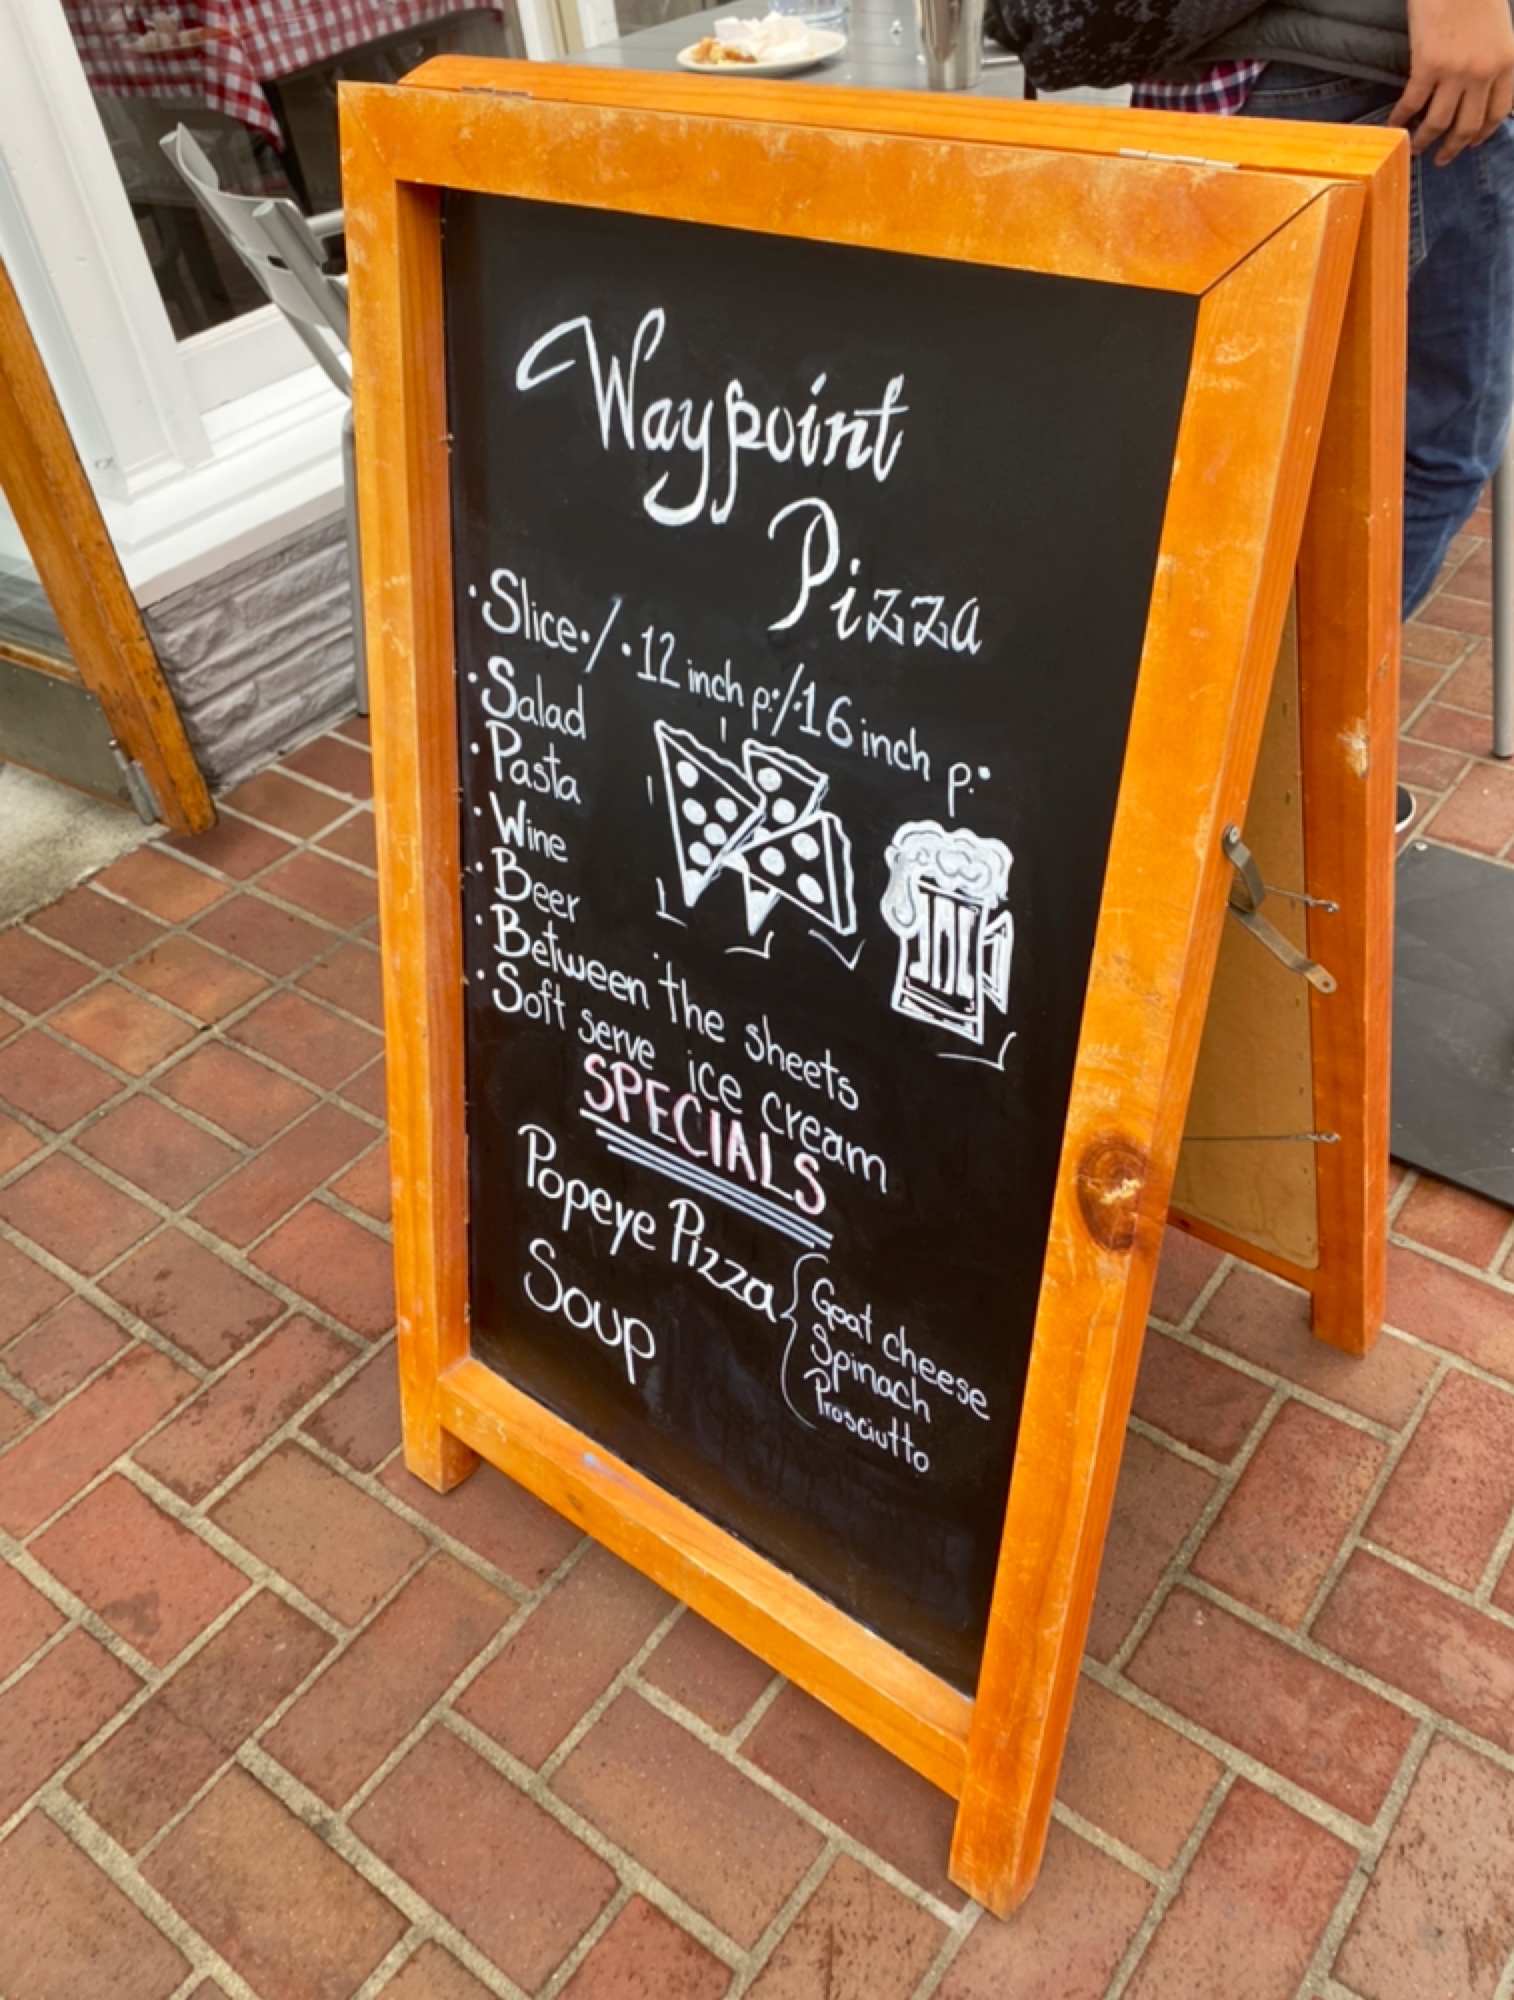 Waypoint
Pizza
· Slice · / · 12 inch p: / · 16 inch p: ·
· Salad
· Pasta
· Wine
· Beer
· Between the sheets
· Soft serve ice cream
SPECIALS
Popeye Pizza { Goat cheese
Spinach
Prosciutto
Soup